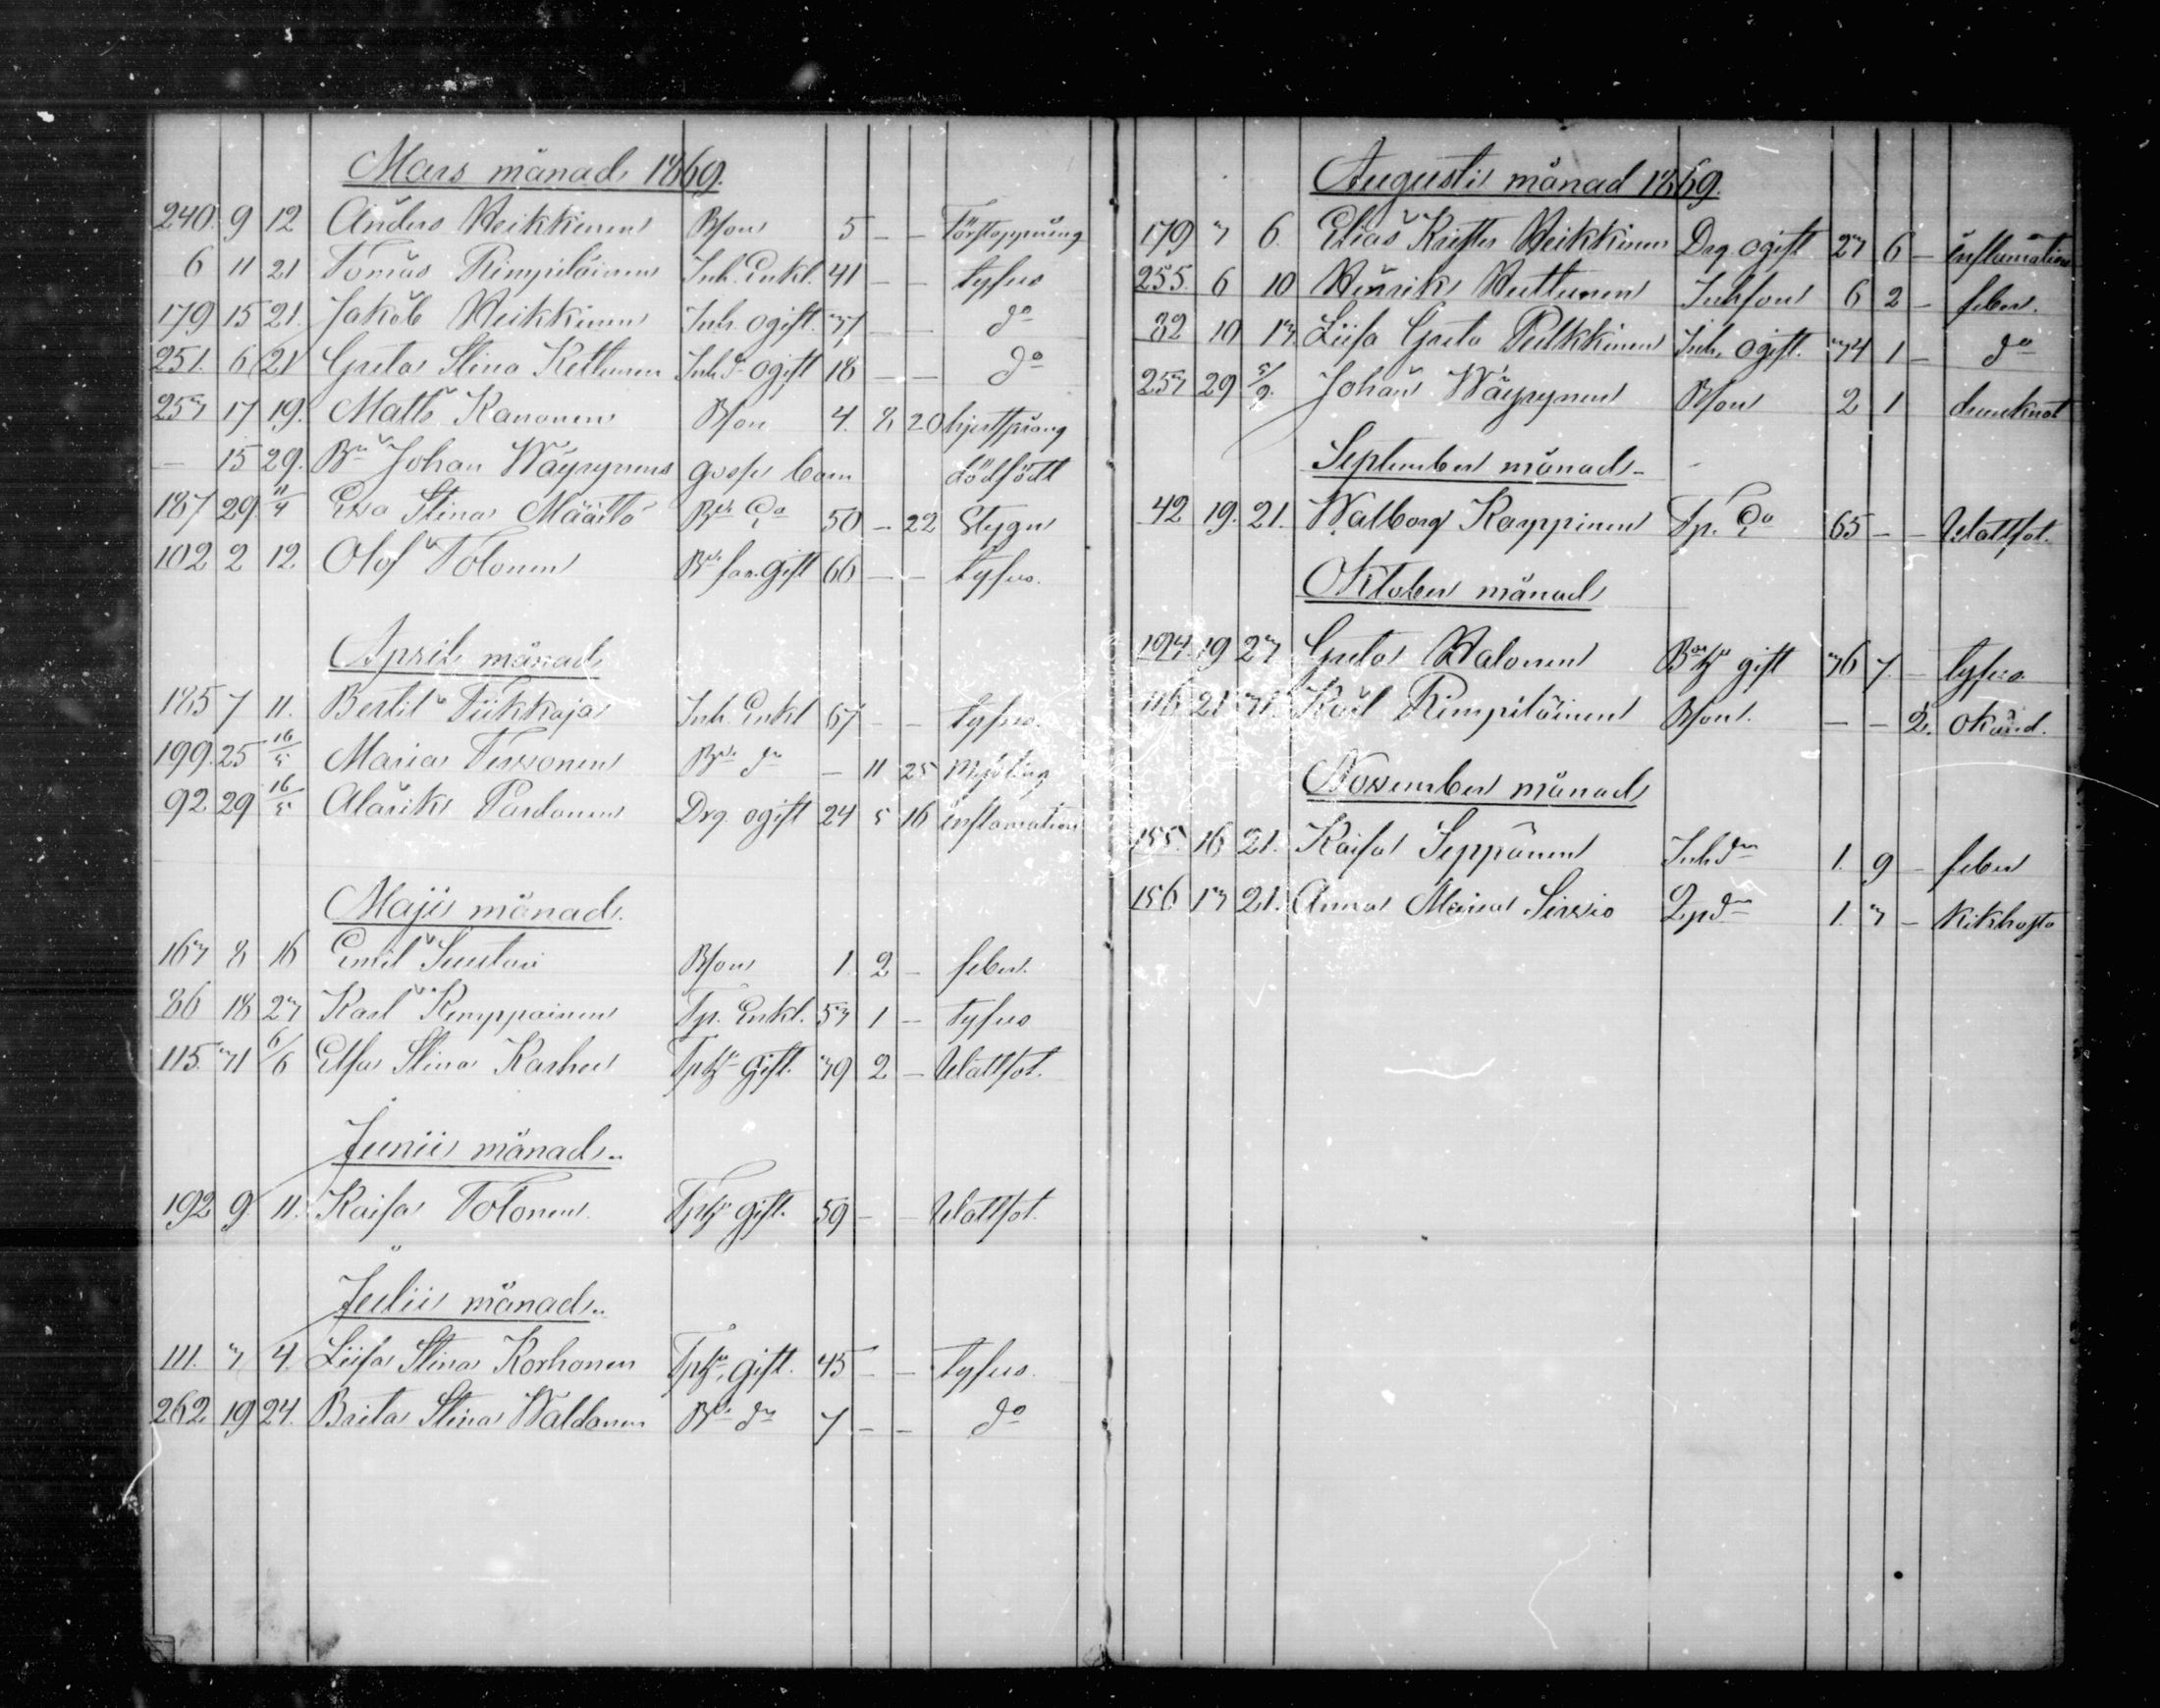 Mars månad 1869.
240. 9 12 Anders Heikkinen Bson 5 – – Förstoppning
6 11 21 Tomas Rimpiläinen Inh. Enkl. 41 – – tyfus
179 15 21. Jakob Heikkinen Inh. ogift. 37 – – do
251. 6 21 Greta Stina Kettunen Inh. ogift 18 – – do
257 17 19. Matts Kanonen Bson 4. 8 20 hjertsprång
– 15 29. Bn Johan Wäyrynens gosse barn dödfödt
187 29. 11/4 Ewa Stina Määttö Bde Enka 50 – 22 Stygn
102 2 12. Olof Tolonen Bde far. gift 66 – – tyfus.
April månad
185 7 11. Bertil Tiikkaja Inh. Enkl 67 – – tyfus.
199. 25 16/5 Maria Terwonen Bde dr – 11 25 Messling
92 29 16/5 Alarik Pardanen Drg ogift 24 5 16 inflamation
Maji månad.
167 8 16 Emil Suutari Bson 1. 2 – feber.
86 18 27 Karl Kemppainen Tp. Enkl. 57 1 – Tyfus
115. 31 6/6 Elsa Stina Karhu Tphu gift. 39 2 – Wattsot.
Junii månad
192 9. 11. Kaisa Tolonen Tphu gift. 59 – – Wattsot.
Julii månad
111. 7 4. Liisa Stina Korhonen Tphu gift. 45 – – Tyfus.
262. 19 24. Brita Stina Waldanen Bde dr 7 – – do
Augusti månad 1869.
179 7 6. Elias Krister Heikkinen Drg. ogift 27 6 – inflamation
255. 6 10 Henrik Huttunen Inhson 6 2 – feber.
32 10 17 Liisa Greta Pulkkinen Inh. ogift. 34 1 – do
257 29 5/9. Johan Wäyrynen Bson 2 1 drunknat
September månad
42 19. 21. Walborg Karppinen Tp. Enka 65 – – Wattsot.
Oktober månad
194. 19 27 Greta Halonen Bdehu gift 36 7 – tyfus.
116 21 31. Karl Rimpiläinen Bson. – – 2. okänd.
November månad
155. 16 21. Kaisa Seppänen Inhdr 1. 9 – feber
156 17 21. Anna Maria Sirwio Lpdr 1. 7 – Kikhosta